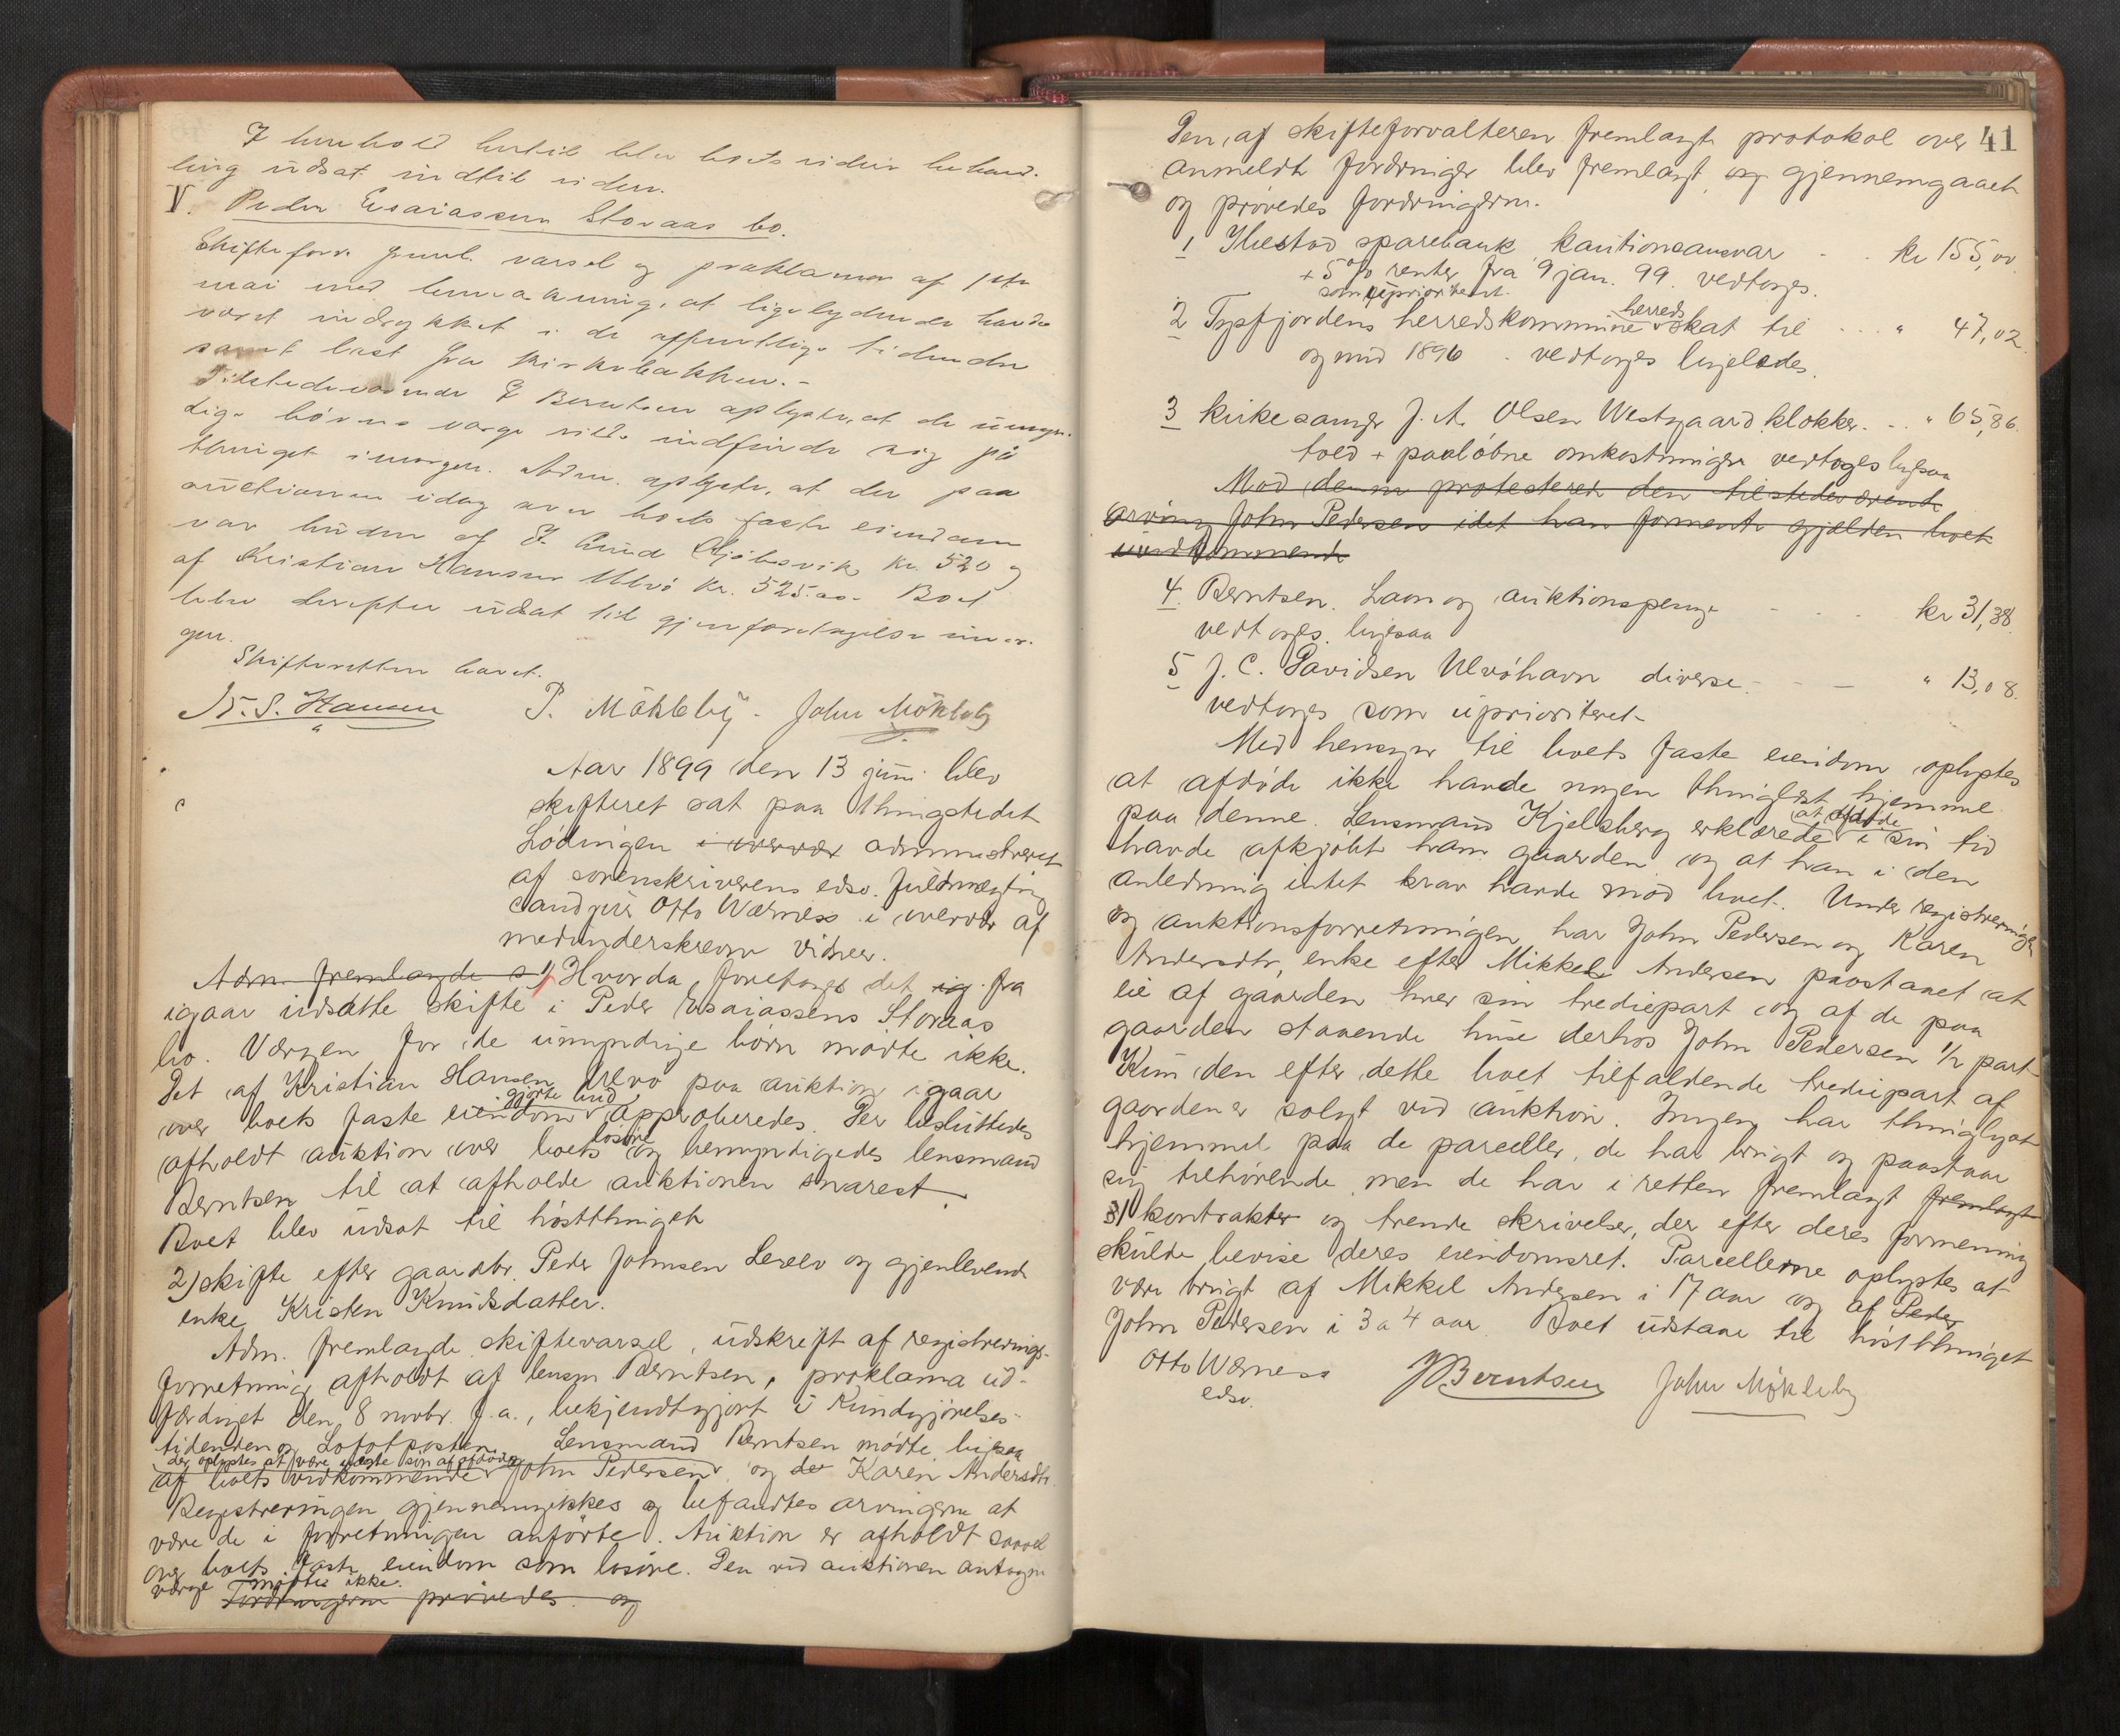 I henhold hertil blev boets videre behand-
ling udsat indtil videre.
V. Peder Esaiassen Storaas bo.
Skifteforv. freml. varsel og proklama af 1ste
mai med bemærkning, at ligelydende havde
været indrykket i de offentlige tidender
samt læst fra kirkebakken.-
Tilstedeværende E Berntsen oplyste, at de umyn-
dige børns værge vilde indfinde sig på
thinget imorgen. Adm. oplyste, at der paa
auctionen idag over boets faste eiendom
var buden af E Aund kr. 520 og
af Kristian Hansen Ulvø kr. 525.00. Boet
blev derefter udsat til gjenforetagelse imor-
gen.
Skifteretten hævet.
N. S. Hansen P. Mökleby. John Mökleby
Aar 1899 den 13 juni blev
skifteret sat paa thingstedet
Lødingen i overvær administreret
af sorenskriverens edsv. fuldmægtig
cand jur Otto Wærness i overvær af
medunderskrevne vidner.
Adm. fremlagde s 1/ Hvorda foretoges det ig fra
igaar udsatte skifte i Peder Esaiassens Storaas
bo. Værgen for de umyndige børn mødte ikke.
Det af Kristian Hansen Ulvø paa auktion igaar
gjorte bud
over boets faste eiendom approberedes. Der besluttedes
løsøre
afholdt auktion over boets og bemyndigedes lensmand
Berntsen til at afholde auktionen snarest.
Boet blev udsat til høstthinget
2) skifte efter gaardbr. Peder Johnsen og gjenlevende
enke Kristen Knudsdatter.
Adm. fremlagde skiftevarsel, udskrift af registrerings-
forretning afholdt af lensm Berntsen, proklama ud-
færdiget den 8 novbr. f.a., bekjendtgjort i Kundgjørelses-
tidenden og Lofotposten. Lensmand Berntsen mødte ligesaa
der oplystes at være søn af afdøde
af boets vedkommende John Pedersen og de Karen Andersdtr.
Registreringen gjennemgikkes og befandtes arvingerne at
være de i forretningen anførte. Auktion er afholdt saavel
over boets faste eiendom som løsøre. Den ved auktionen antagne
værge mødte ikke.
Fordringerne prøvedes og
41
Den af skifteforvalteren fremlagte protokol over
anmeldte fordringer blev fremlagt og gjennemgaaet
og prøvedes fordringerne.
1 Ibestad sparebank kautionsansvar . . kr 155,00
+ 5% renter fra 9 jan. 99. vedtoges.
som uprioriteret.
herreds
2 Tysfjordens herredskommune skat til . . . " 47,02.
og med 1896 . vedtoges ligeledes.
3 kirkesanger J. A. Olsen Westgaard klokker. . . " 65,86.
told + paaløbne omkostninger vedtoges ligesaa
Mod denne protesterer den tilstedeværende
arving John Pedersen idet han formente gjælden boet
uvedkommende
4. Berntsen. Laan og auktionspenge - . . . kr 31,38.
vedtoges ligesaa
5 J. C. Davidsen Ulvøhavn diverse. - - - " 13,08.
vedtoges som uprioriteret.
Med hensyn til boets faste eiendom oplystes
at afdøde ikke havde nogen thinglæst hjemmel
at afdøde
paa denne. Lensmand Kjelsberg erklærede i sin tid
havde afkjøbt ham gaarden og at han i den
anledning intet krav havde mod boet. Under registrerings
og auktionsforretningen har John Pedersen og Karen
Andersdtr, enke efter Mikkel Andersen paastaaet at
eie af gaarden hver sin trediepart og af de paa
gaarden staaende huse derhos John Pedersen 1/2 part
Kun den efter dette boet tilfaldende trediepart af
gaarden er solgt ved auktion. Ingen har thinglyst
hjemmel paa de parceller, de har brugt og paastaar
sig tilhørende, men de har i retten fremlagt fremlagt
3/ kontrakter og trende skrivelser, der efter deres formening
skulde bevise deres eiendomsret. Parcellerne oplystes at
være brugt af Mikkel Andersen i 17 aar og af Peder
John Pedersen i 3 a 4 aar. Boet udstaar til høstthinget
Otto Wærness JBerntsen John Mökleby
edsv.